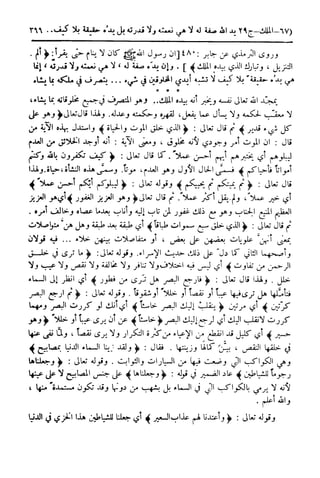 (٦٧-الملك-ج٢٩ يد الله صفة له لا هي نعمته ولا قدرته بل يده حقيقة بلا كيف..) ٣٦٦
وروى الترمذي عن جابر : ٤٨٠ [إن رسول الله ﷺ كان لا ينام حتى يقرأ: ﴿ الم .
التنزيل ، وتبارك الذي بيده الملك ] . وإن يده صفة له ، لا هي نعمته ولا قدرته ، إنما
هي يده حقيقة بلا كيف لا تشبه أيدي المخلوقين في شيء ... يتصرف في ملكه بما يشاء
* * *
يمجّد الله تعالى نفسه ويخبر أنه بيده الملك.. وهو المتصرف في جميع مخلوقاته بما يشاء،
لا معقب لحكمه ولا يسأل عما يفعل، لقهره وحكمته وعدله. ولهذا قال تعالى: ﴿ وهو على
كل شيء قدير ﴾ ثم قال تعالى : ﴿ الذي خلق الموت والحياة ﴾ واستدل بهذه الآية من
قال : إن الموت أمر وجودي لأنه مخلوق ، ومعنى الآية : أنه أوجد الخلائق من العدم
ليبلوهم أي يختبرهم أيهم أحسن عملاً . كما قال تعالى : ﴿ كيف تكفرون بالله وكنتم
أمواتاً فأحياكم ﴾ فسمّى الحال الأول وهو العدم، موتاً. وسمى هذه النشأة، حياة. ولهذا
قال تعالى : ﴿ ثم يميتكم ثم يحييكم ﴾ وقوله تعالى : ﴿ ليبلوكم أيكم أحسن عملاً ﴾
أي خير عملاً، ولم يقل أكثر عملاً. ثم قال تعالى ﴿ وهو العزيز الغفور ﴾ أي هو العزيز
العظيم المنيع الجناب وهو مع ذلك غفور لمن تاب إليه وأناب بعدما عصاه وخالف أمره .
ثم قال تعالى : ﴿ الذي خلق سبع سموات طباقاً ﴾ أي طبقة بعد طبقة وهل هن متواصلات
بمعنى أنهن علويات بعضهن على بعض ، أو متفاصلات بينهن خلاء ... فيه قولان
وأصحهما الثاني كما دل على ذلك حديث الإسراء. وقوله تعالى: ﴿ ما ترى في خلق
الرحمن من تفاوت ﴾ أي ليس فيه اختلاف ولا تنافر ولا مخالفة ولا نقص ولا عيب ولا
خلل . ولهذا قال تعالى : ﴿ فارجع البصر هل ترى من فطور ﴾ أي انظر إلى السماء
فتأملها هل ترى فيها عيباً أو نقصاً أو خللاً أو شقوقاً . وقوله تعالى : ﴿ ثم ارجع البصر
كرتين ﴾ أي مرتين ﴿ ينقلب إليك البصر خاسئاً ﴾ أي أنك لو كررت البصر ومهما
كررت لانقلب إليك أي لرجع إليك البصر ﴿ خاسئاً ﴾ عن أن يرى عيباً أو خللاً ﴿ وهو
حسير ﴾ أي كليل قد انقطع من الإعياء من كثرة التكرار ولا يرى نقصاً ، ولمّا نفى عنها
في خلقها النقص ، بيّن كمالها وزينتها . فقال : ﴿ ولقد زينا السماء الدنيا بمصابيح ﴾
وهي الكواكب التي وضعت فيها من السيارات والثوابت . وقوله تعالى : ﴿ وجعلناها
رجوماً للشياطين ﴾ عاد الضمير في قوله : ﴿ وجعلناها ﴾ على جنس المصابيح لا على عينها
لأنه لا يرمي بالكواكب التي في السماء بل بشهب من دونها وقد تكون مستمدة منها ،
والله أعلم .
وقوله تعالى : ﴿ وأعتدنا لهم عذاب السعير ﴾ أي جعلنا للشياطين هذا الخزي في الدنيا